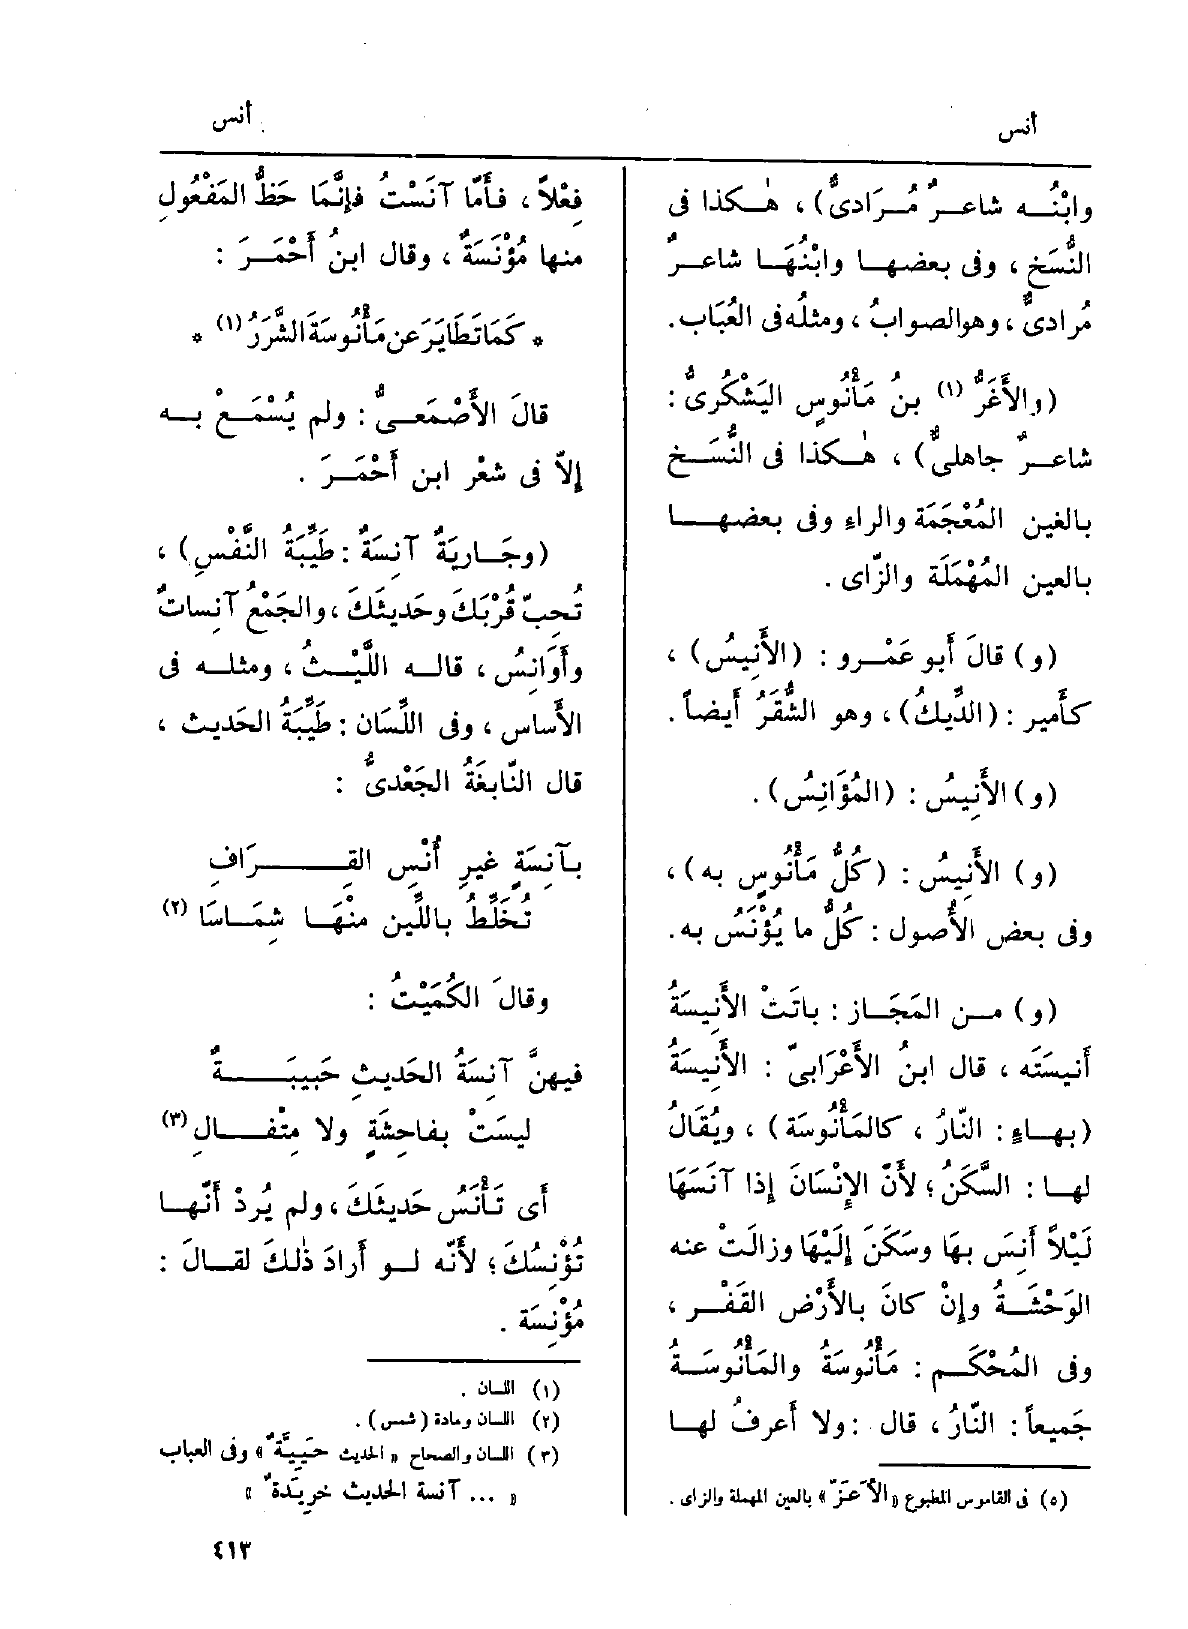 أنس
أنس
وابْنُه شاعرٌ مُرَادىٌّ)، هٰكذا فى
النُّسَخ ، وفى بعضها وابْنُهَا شاعرٌ
مُرادىٌّ ، وهو الصوابُ ، ومثلُه فى العُبَاب.
(والأَغَرُّ (١) بنُ مَأْنُوسٍ اليَشْكُرىُّ :
شاعرٌ جاهلىٌّ) ، هٰكذا فى النُّسَخ
بالغين المُعْجَمَة والراءِ وفى بعضها
بالعين المُهْمَلَة والزّاى .
(و) قالَ أبو عَمْرو : (الأَنِيسُ) ،
كأَمير : (الدِّيكُ) ، وهو الشُّقَرُ أَيضاً .
(و) الأَنِيسُ : (المُؤَانِسُ) .
(و) الأَنِيسُ : (كُلُّ مَأْنُوسٍ به) ،
وفى بعض الأُصول : كُلُّ ما يُؤْنَسُ به.
(و) من المَجَاز : باتَتْ الأَنِيسَةُ
أَنيسَتَه ، قال ابنُ الأَعْرَابىّ : الأَنِيسَةُ
(بهاءٍ : النّارُ ، كالمَأْنُوسَة) ، ويُقَالُ
لها : السَّكَنُ ؛ لأَنّ الإِنْسَانَ إذا آنَسَهَا
لَيْلاً أَنِسَ بهَا وسَكَنَ إِلَيْهَا وزالَتْ عنه
الوَحْشَةُ وإنْ كانَ بالأَرْضِ القَفْر ،
وفى المُحْكَم : مَأْنُوسَةُ والمَأْنُوسَةُ
جَميعاً : النّارُ ، قال : ولا أَعرفُ لها
(٥) فى القاموس المطبوع «الأَعَزّ» بالعين المهملة والزاى .
فِعْلاً ، فأَمّا آنَسْتُ فإنَّمَا حَظُّ المَفْعُولِ
منها مُؤْنَسَةٌ ، وقال ابنُ أَحْمَرَ :
* كَمَا تَطَايَرَ عن مَأْنُوسَةَ الشَّرَرُ (١) *
قالَ الأَصْمَعىُّ : ولم يُسْمَعْ به
إلاّ فى شعْر ابن أَحْمَرَ .
(وجَاريَةٌ آنِسَةٌ : طَيِّبَةُ النَّفْسِ) ،
تُحبّ قُرْبَكَ وحَديثَكَ ، والجَمْعُ آنِساتٌ
وأَوَانِسُ ، قاله اللَّيْثُ ، ومثله فى
الأَساس ، وفى اللِّسَان : طَيِّبَةُ الحَديث ،
قال النّابغَةُ الجَعْدىُّ :
بآنِسَةٍ غيرِ أُنْسِ القِرَافِ
تُخَلِّطُ باللِّين منْهَا شِمَاسَا (٢)
وقالَ الكُمَيْتُ :
فيهنَّ آنِسَةُ الحَديثِ حَبِيبَةٌ
ليسَتْ بفاحِشَةٍ ولا مِتْفَالِ (٣)
أى تَأْنَسُ حَديثَكَ ، ولم يُرِدْ أَنّها
تُؤْنِسُكَ ؛ لأَنَّه لو أَرادَ ذٰلكَ لقالَ :
مُؤْنِسَة .
(١) اللسان .
(٢) اللسان ومادة (شمس) .
(٣) اللسان والصحاح «الحديث حَيِيَّةٌ» وفى العباب
« ... آنسة الحديث خريَدةٌ »
٤١٣